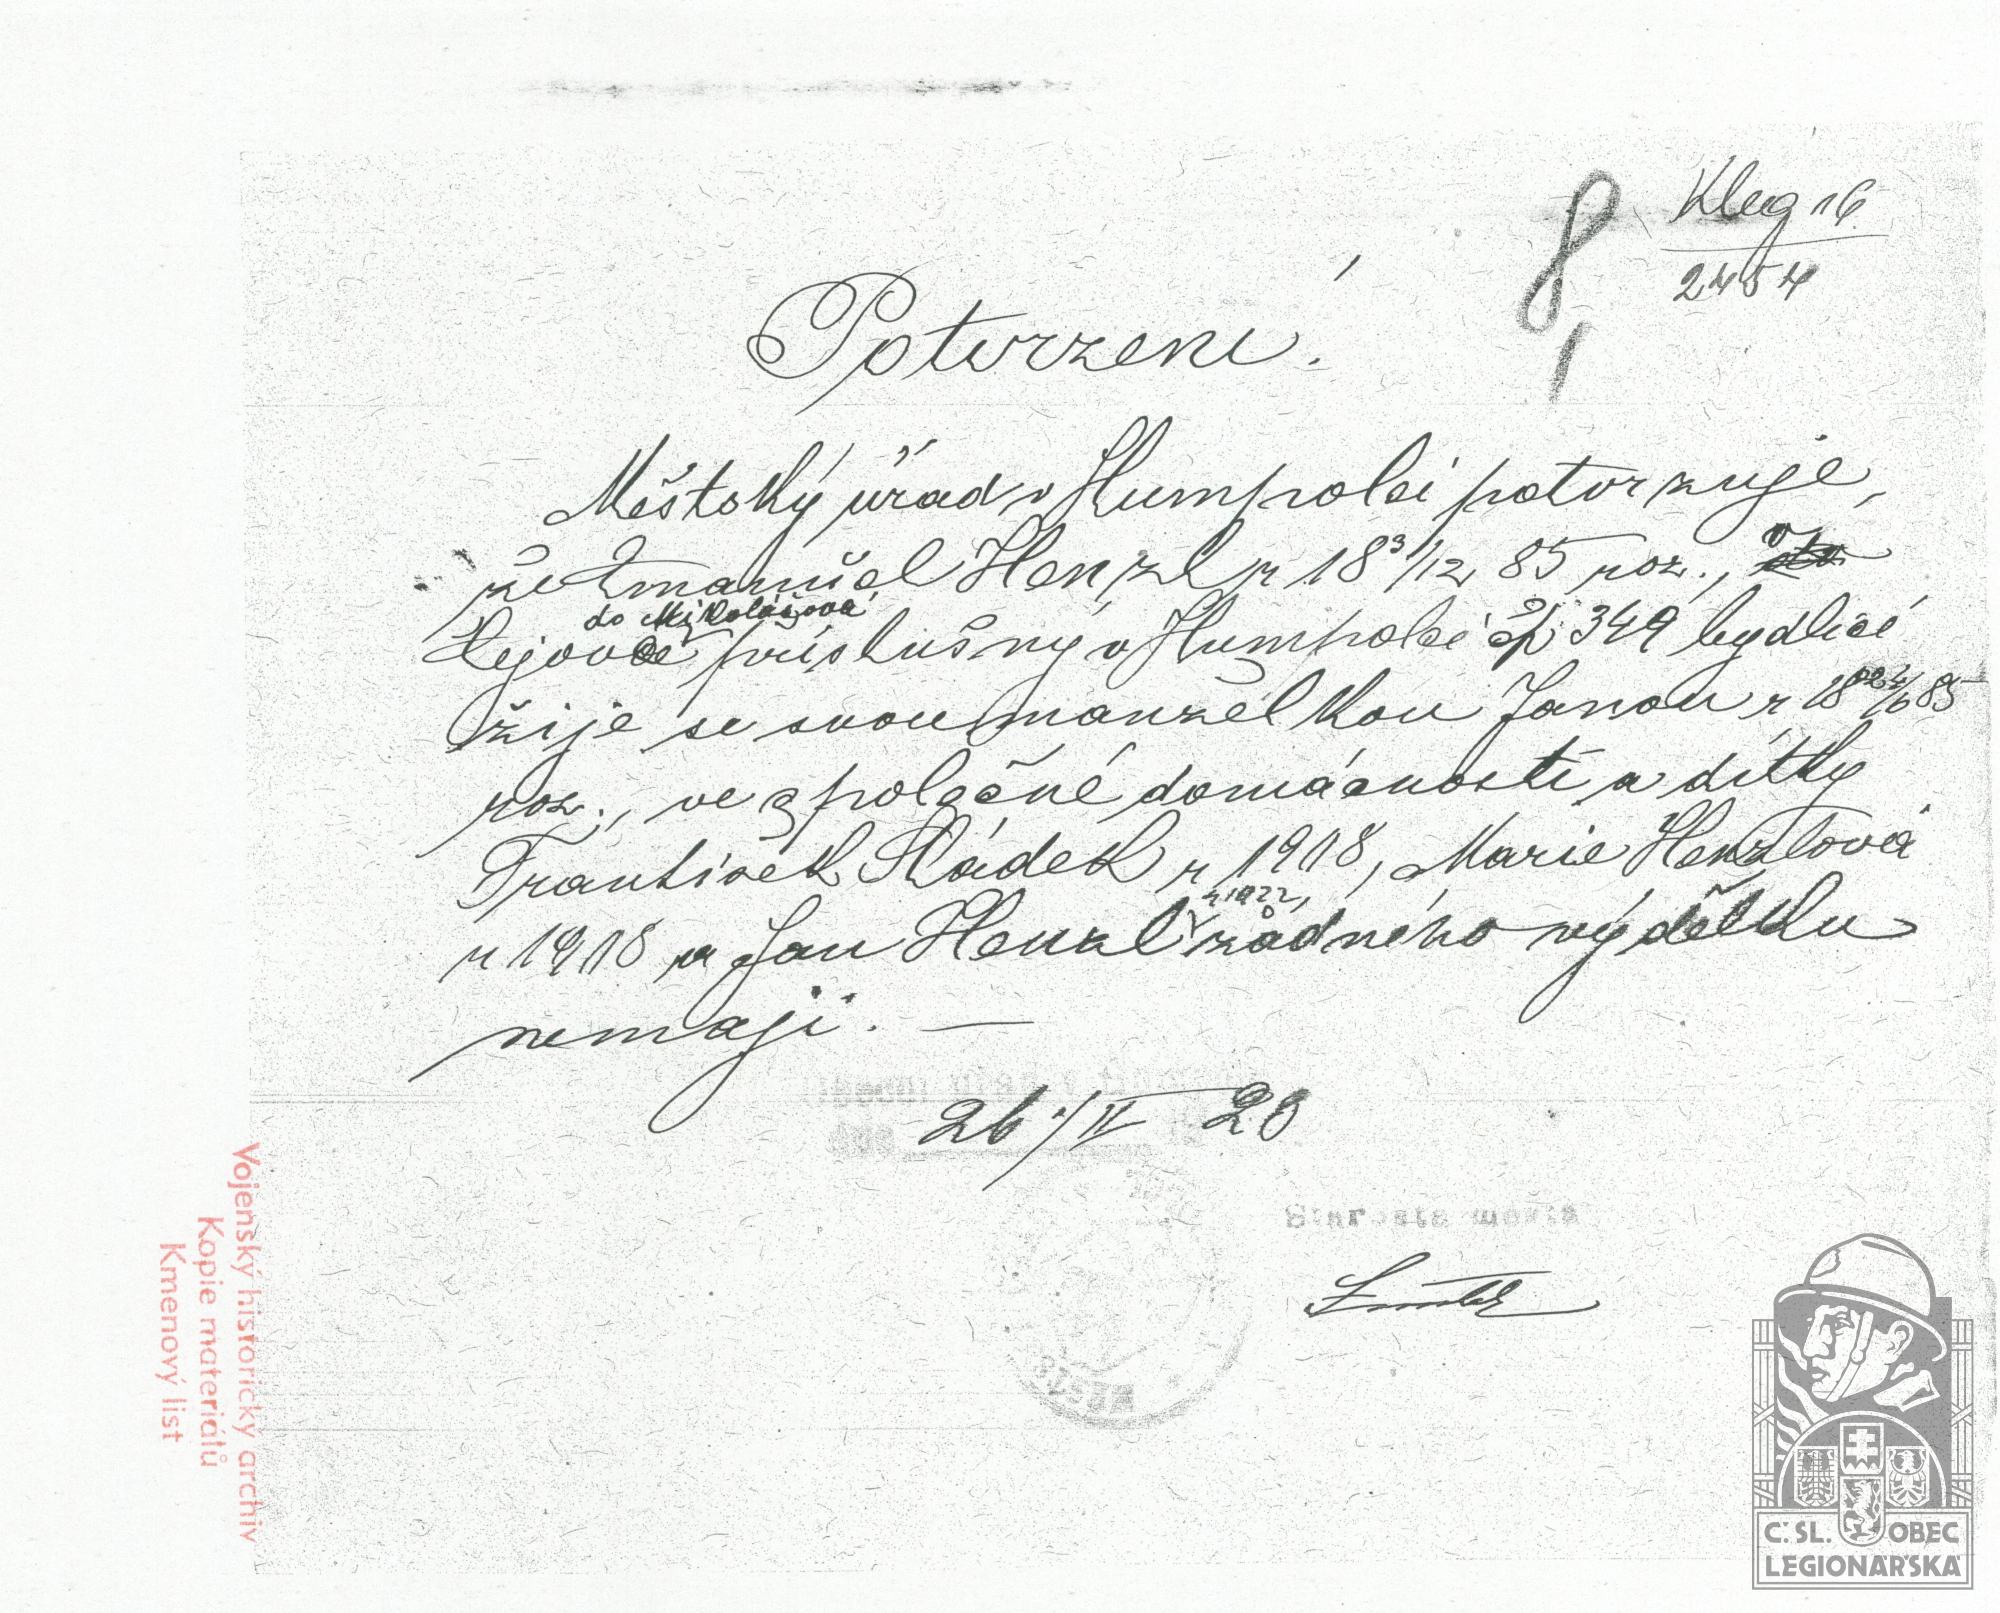 Kleg 16
2454
8,
Potvrzení.
Městský úřad v Humpolci potvrzuje,
že Emanuel Henzl r 18 3/12 85 roz., v
do Mikolášova
Kejově příslušný v Humpolci čp 349 bydlící
žije se svou manželkou Janou r 18 24/6 85
roz., ve společné domácnosti a dítky
František Sládek r 1918, Marie Henzlová
r 1922,
r 1918 a Jan Henzl žádného výdělku
nemají. —
26./II 28
Starosta města
Vojenský historický archiv
Kopie materiálů
Kmenový list
Č. SL. OBEC
LEGIONÁŘSKÁ